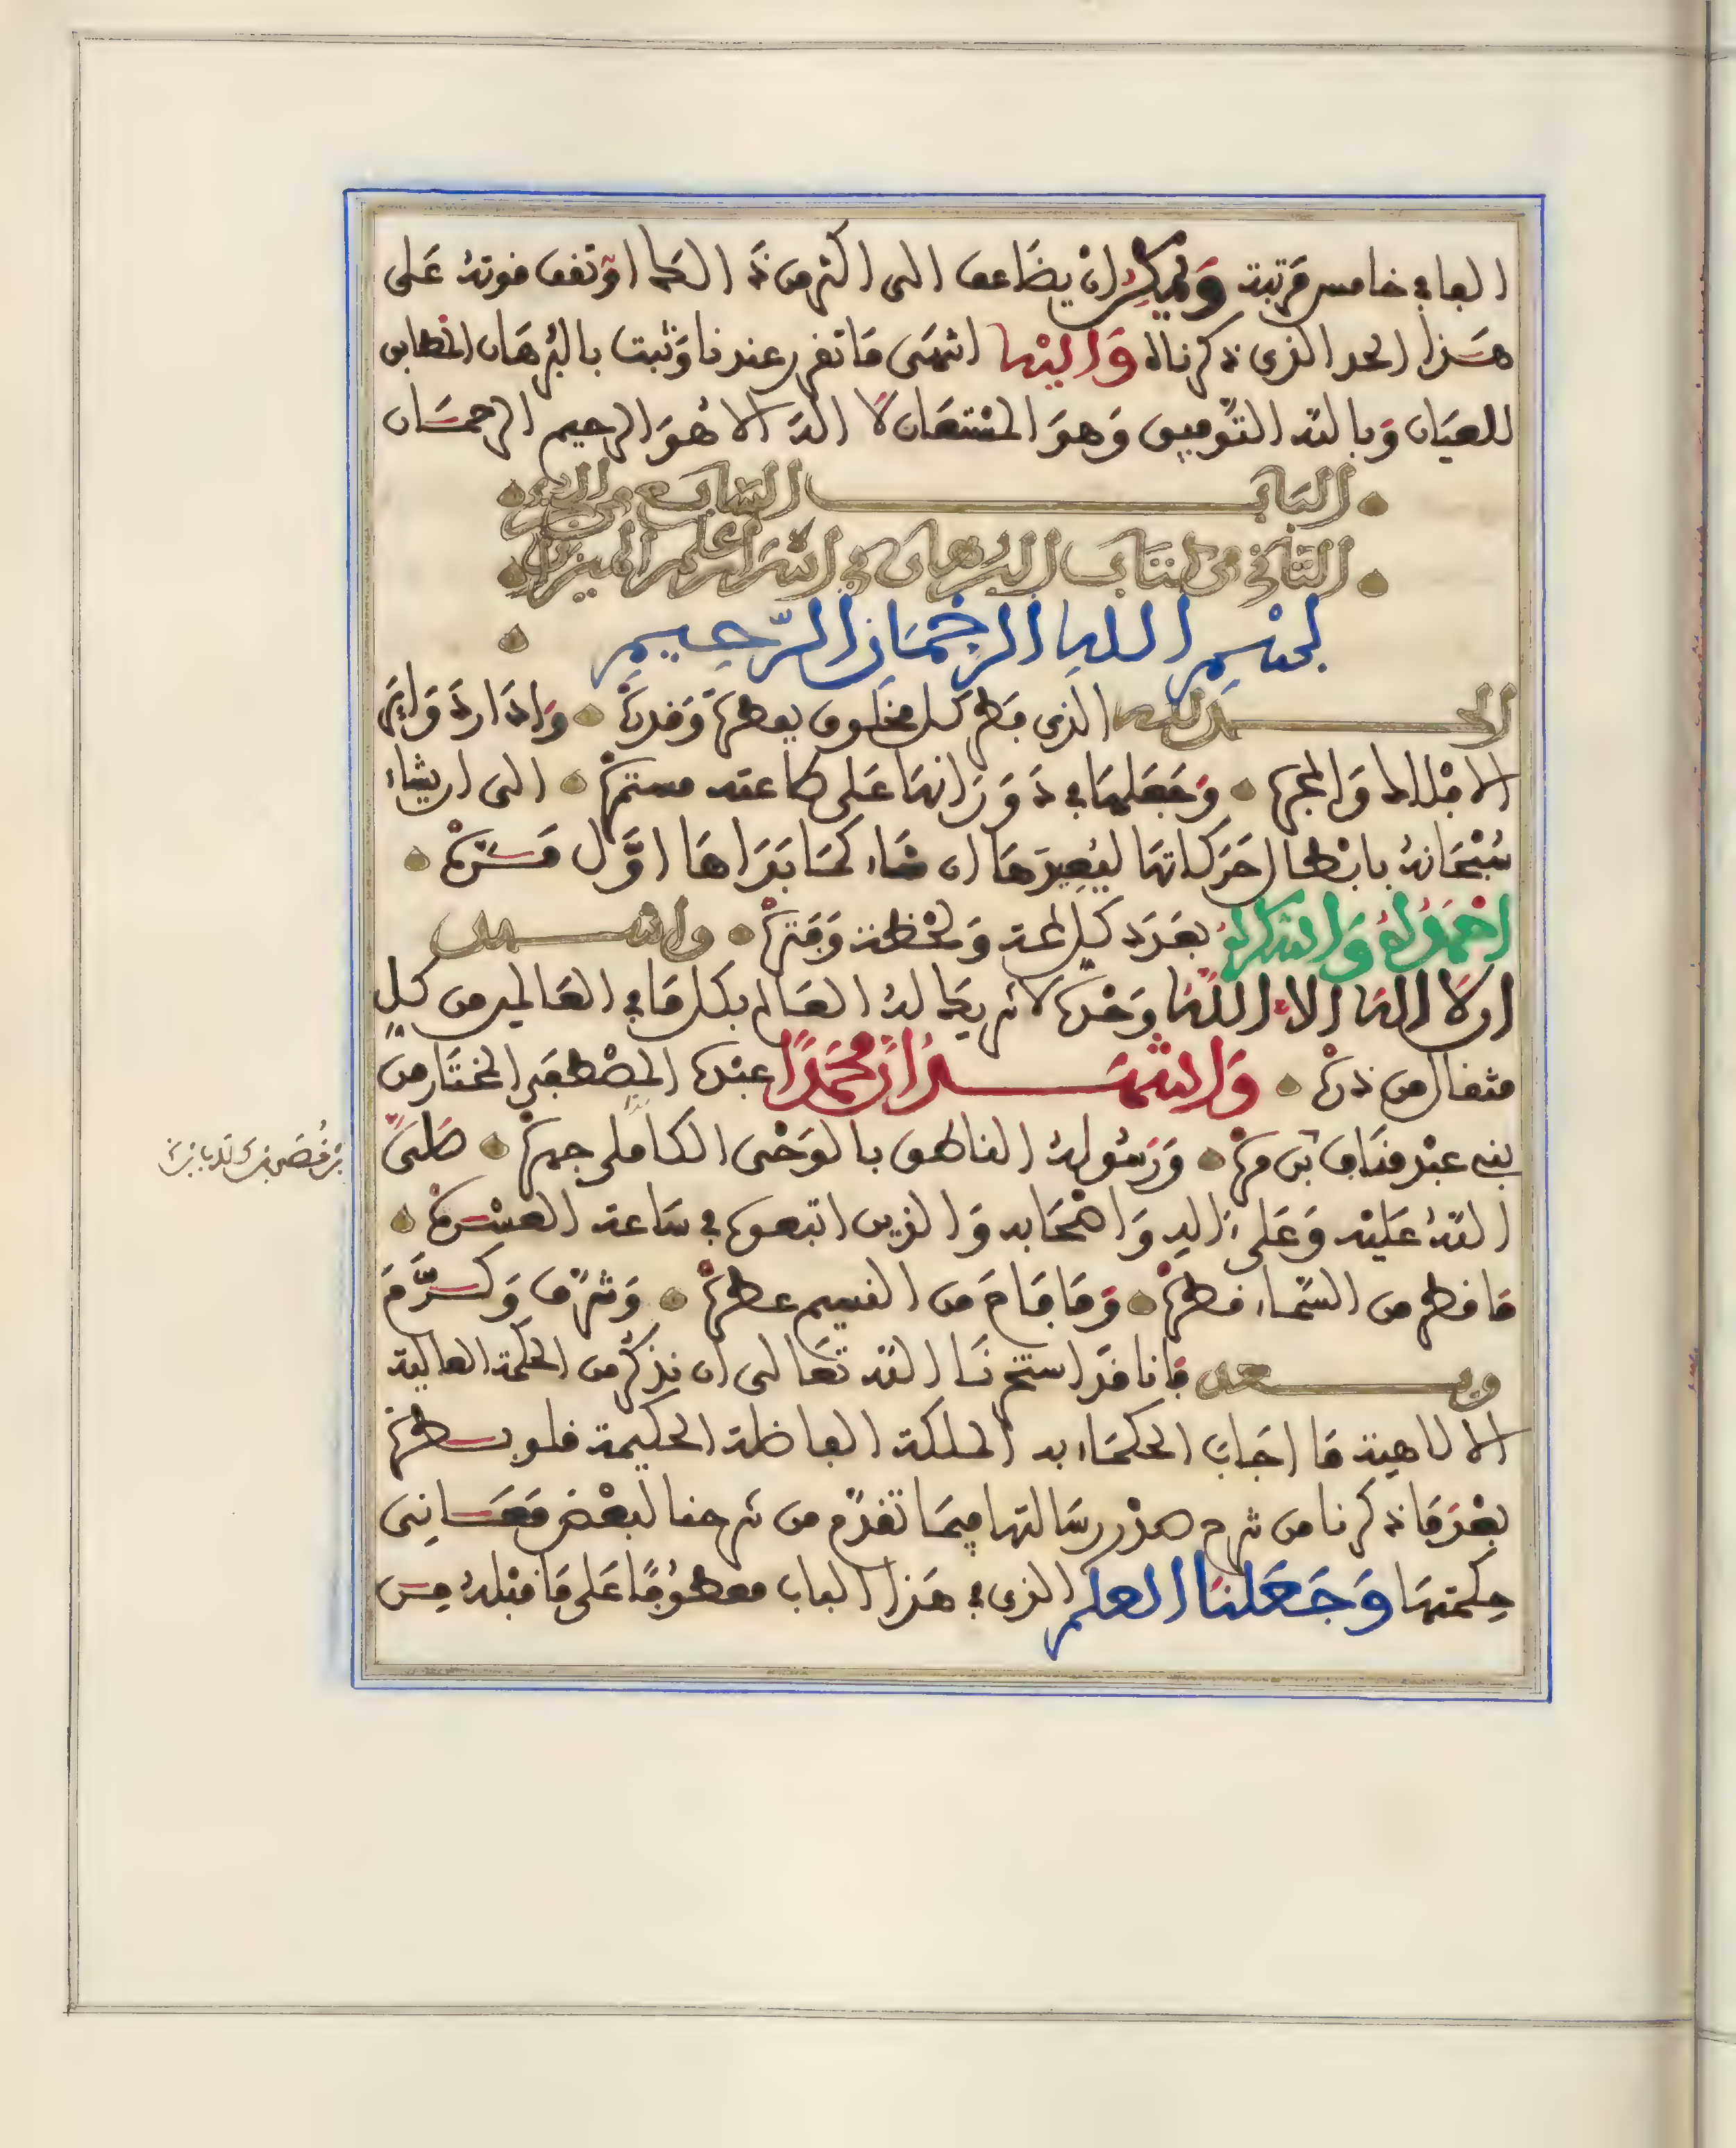 الفا في خامس مرتبة ويمكن ان يضاعف الى اكثر من ذالك او تقف قوته على
هذا الحد الذي ذكرناه والينها انتهى ما تقرر عندنا وثبت بالبرهان المطابق
للعيان وبالله التوفيق وهو المستعان لا اله الا هو الرحيم الرحمان
الباب السابع من الجزء
الثاني من كتاب البرهان في اسرار علم الميزان
بسم الله الرحمان الرحيم
الحمد لله الذي فطر كل مخلوق بفطرة وقدرة وادار دوائر
الافلاك والمجرة وجعلها في دورانها على طاعته مستمرة الى ان يشاء
سبحانه بابطال حركاتها ليعيدها ان شاء كما بدراها اول مرة
احمده واشكره بعدد كل لمحة ولحظة وفترة واشهد
ان لا اله الا الله وحده لا شريك له العالم بكل ما في العالمين من كل
مثقال من ذرة واشهد ان محمدا عبده المصطفى المختار من
بني عبد مناف بن مرة ورسوله الناطق بالوحي الكامل جهرة صلى
الله عليه وعلى ءاله واصحابه والذين اتبعوه في ساعة العسرة
ما قطر من السماء قطرة وما فاح من النسيم عطرة وشرف وكرم
وبعد فانا قد استخرنا الله تعالى ان نذكر من الحكمة العالية
الالاهية ما اجاب الحكماء به الملكة الفاضلة الحكيمة قلوبطرة
بعد ما ذكرنا من شرح صدر رسالتها فيما تقدم من شرحنا لبعض معاني
حكمتها وجعلنا العلم الذي في هذا الباب معطوفا على ما قبله من